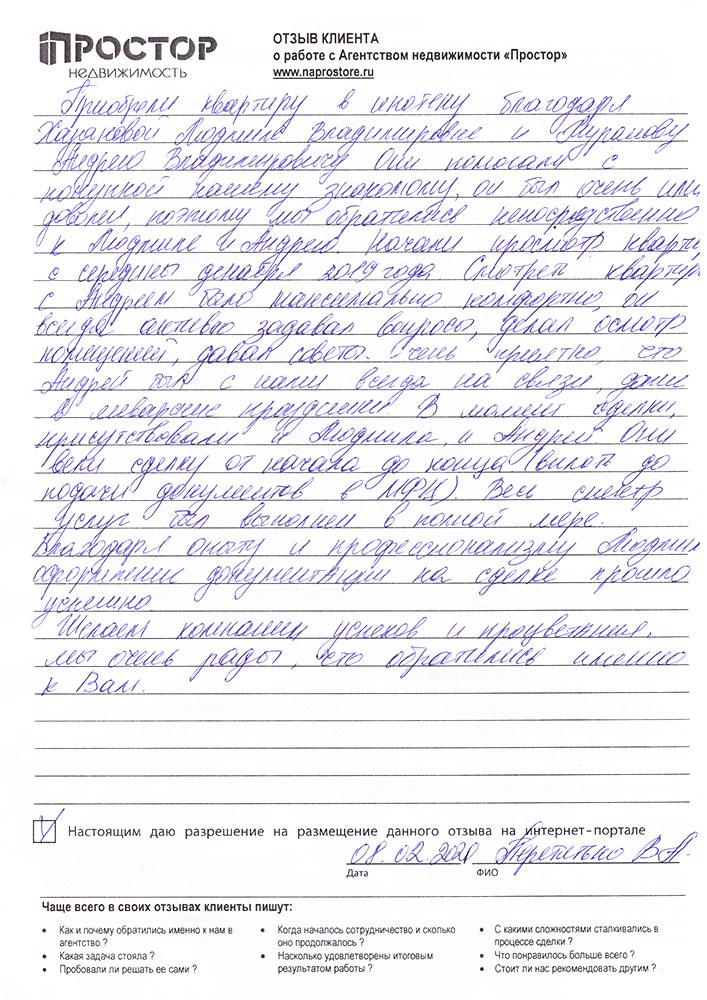 ПРОСТОР
НЕДВИЖИМОСТЬ
ОТЗЫВ КЛИЕНТА
о работе с Агентством недвижимости «Простор»
www.naprostore.ru
Приобрели квартиру в ипотеку благодаря
Людмиле Владимировне и
Андрею Владимировичу Они помогали с
покупкой нашему знакомому, он был очень ими
доволен, поэтому мы обратились непосредственно
к Людмиле и Андрею. Начали просмотр квартир
с середины декабря 2019 года. Смотреть квартиры
с Андреем было максимально комфортно, он
всегда активно задавал вопросы, делал осмотр
помещений, давал советы. очень приятно, что
Андрей был с нами всегда на связи, даже
в январские праздники В момент сделки,
присутствовали и Людмила, и Андрей Они
вели сделку от начала до конца (вплоть до
подачи документов в МФЦ) Весь спектр
услуг был выполнен в полной мере.
Благодаря опыту и профессионализму Людмилы
оформлении документации на сделке прошло
успешно
Желаем компании успехов и процветания,
мы очень рады, что обратились именно
к Вам.
Настоящим даю разрешение на размещение данного отзыва на интернет-портале
08.02.2020 В.А.
Дата ФИО
Чаще всего в своих отзывах клиенты пишут:
• Как и почему обратились именно к нам в агентство ?
• Какая задача стояла ?
• Пробовали ли решать ее сами ?
• Когда началось сотрудничество и сколько оно продолжалось ?
• Насколько удовлетворены итоговым результатом работы ?
• С какими сложностями сталкивались в процессе сделки ?
• Что понравилось больше всего ?
• Стоит ли нас рекомендовать другим ?